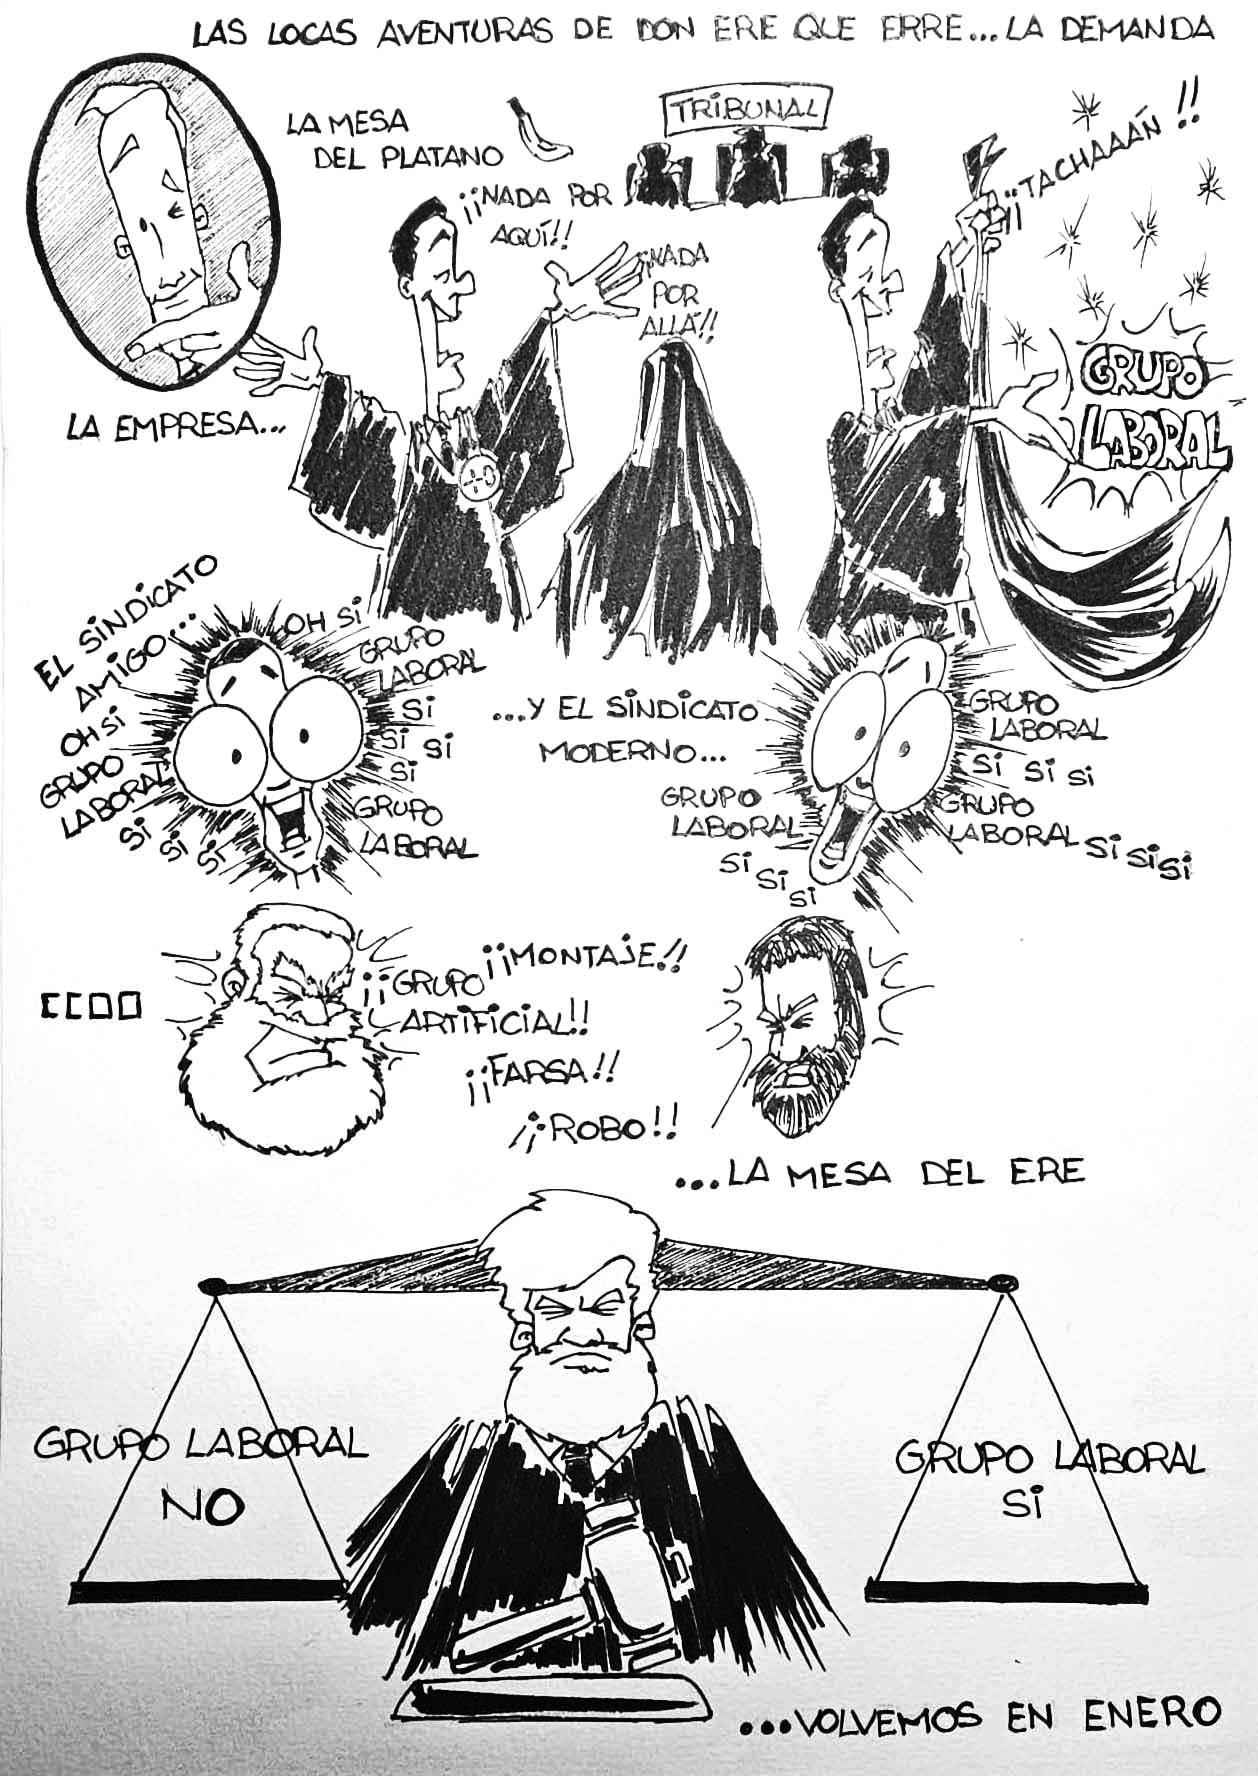 LAS LOCAS AVENTURAS DE DON ERE QUE ERRE... LA DEMANDA
LA MESA
DEL PLATANO
TRIBUNAL
¡¡NADA POR
AQUÍ!!
¡NADA
POR
ALLÁ!!
¡¡TACHAAAÁN!!
GRUPO
LABORAL
LA EMPRESA...
EL SINDICATO
AMIGO...
OH SI
GRUPO
LABORAL
SI
SI
SI
OH SI
GRUPO
LABORAL
SI
SI SI
SI
GRUPO
LABORAL
...Y EL SINDICATO
MODERNO...
GRUPO
LABORAL
SI
SI
SI
GRUPO
LABORAL
SI SI SI
GRUPO
LABORAL SI SI SI
CCOO
¡¡MONTAJE!!
¡¡GRUPO
ARTIFICIAL!!
¡¡FARSA!!
¡¡ROBO!!
...LA MESA DEL ERE
GRUPO LABORAL
NO
GRUPO LABORAL
SI
...VOLVEMOS EN ENERO